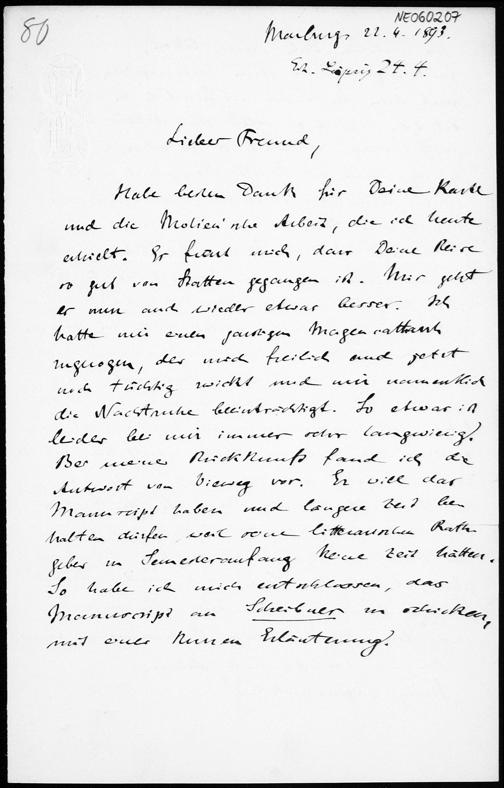 80
NE060207
Marburg 22. 4. 1893.
Erh. Leipzig 24. 4.
Lieber Freund,
Habe besten Dank für Deine Karte
und die Molien'sche Arbeit, die ich heute
erhielt. Es freut mich, dass Deine Reise
so gut von Statten gegangen ist. Mir geht
es nun auch wieder etwas besser. Ich
hatte mir einen garstigen Magencattarrh
zugezogen, der mich freilich auch jetzt
noch tüchtig zwickt und mir namentlich
die Nachtruhe beeinträchtigt. So etwas ist
leider bei mir immer sehr langwierig.
Bei meiner Rückkunft fand ich die
Antwort von Vieweg vor. Er will das
Manuscript haben und längere Zeit be
halten dürfen weil seine litterarischen Rath
geber im Semesteranfang keine Zeit hätten.
So habe ich mich entschlossen, das
Manuscript an Scheibner zu schicken,
mit einer kurzen Erläuterung.